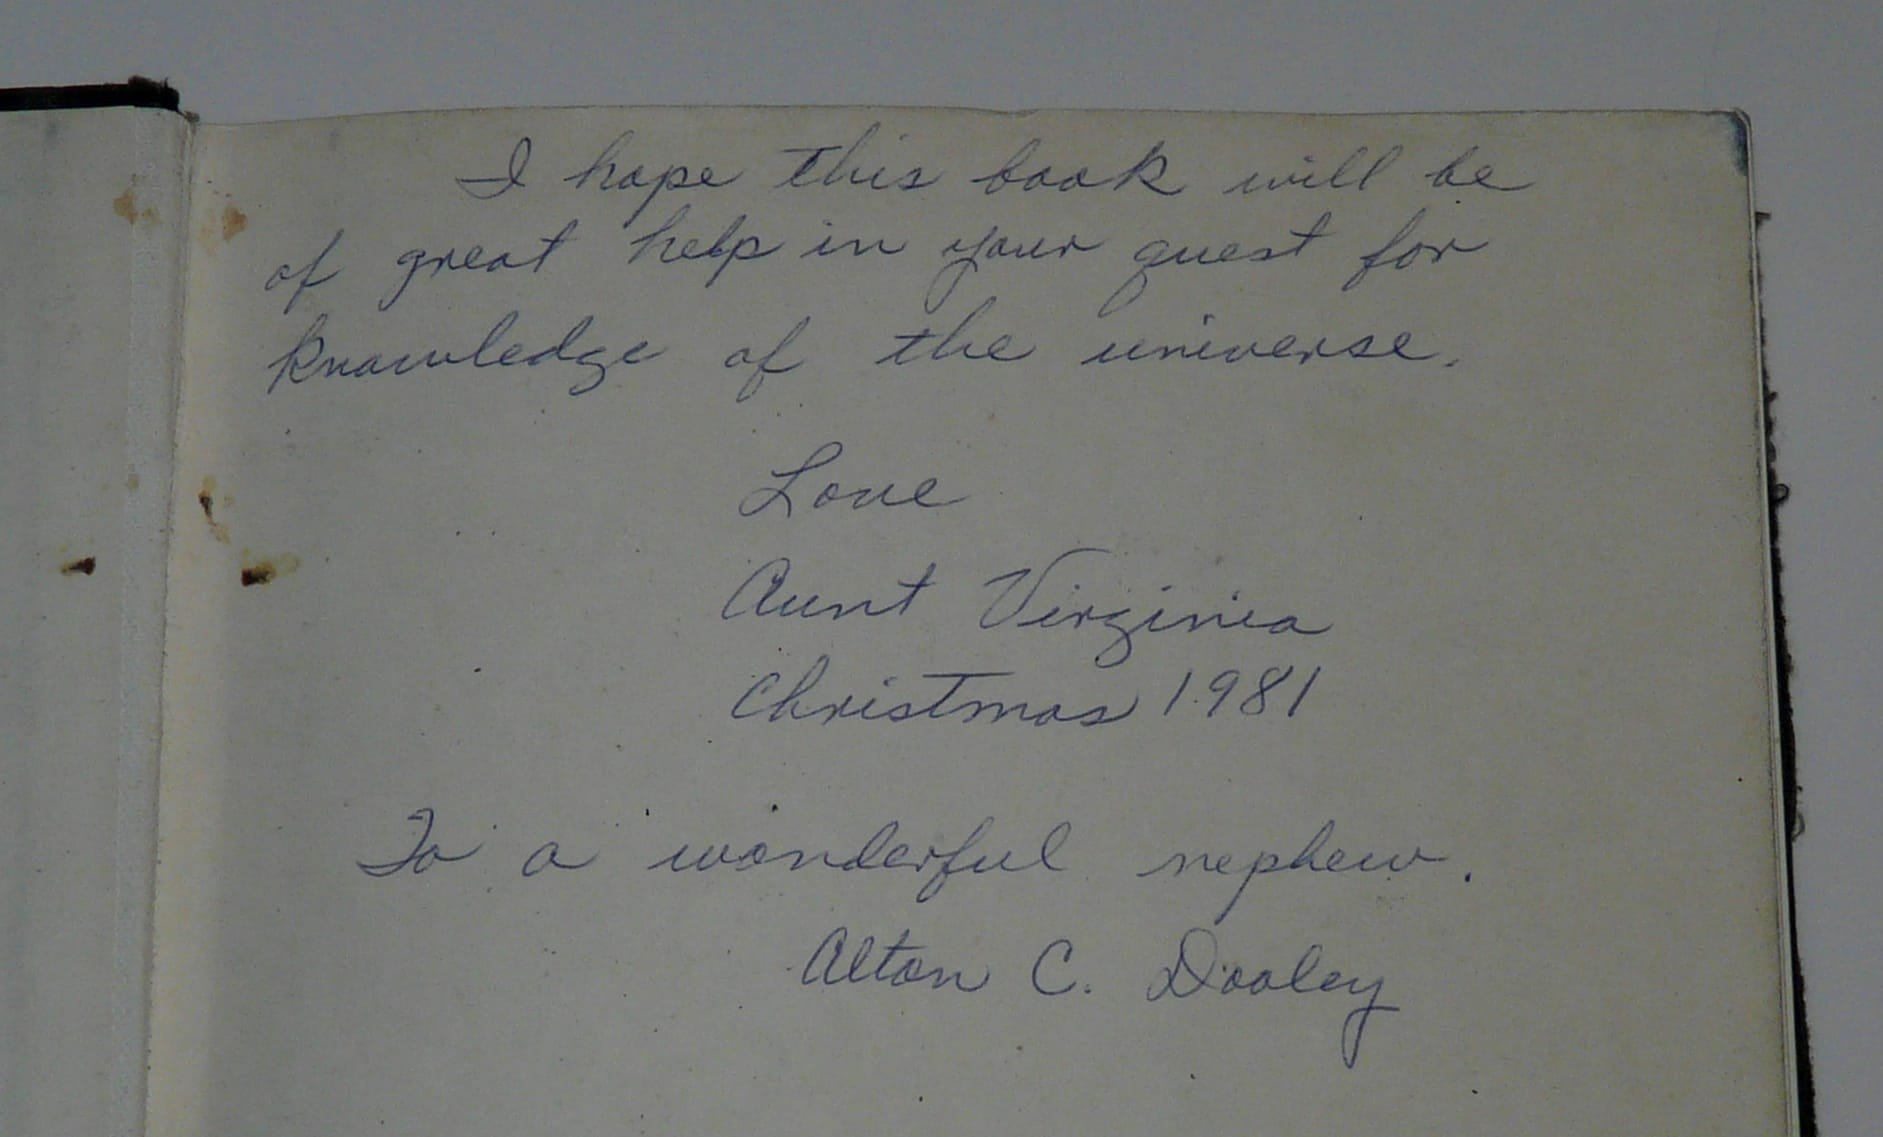 I hope this book will be
of great help in your quest for
knowledge of the universe.
Love
Aunt Virginia
Christmas 1981
To a wonderful nephew.
Alton C. Dooley